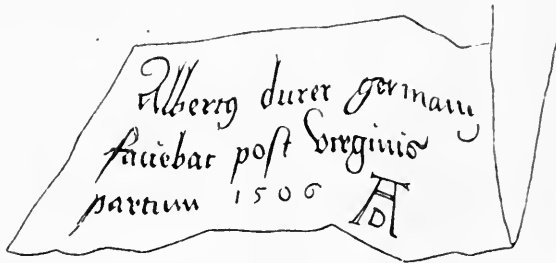 Albertꝰ durer germanꝰ
faciebat post virginis
partum 1506 AD